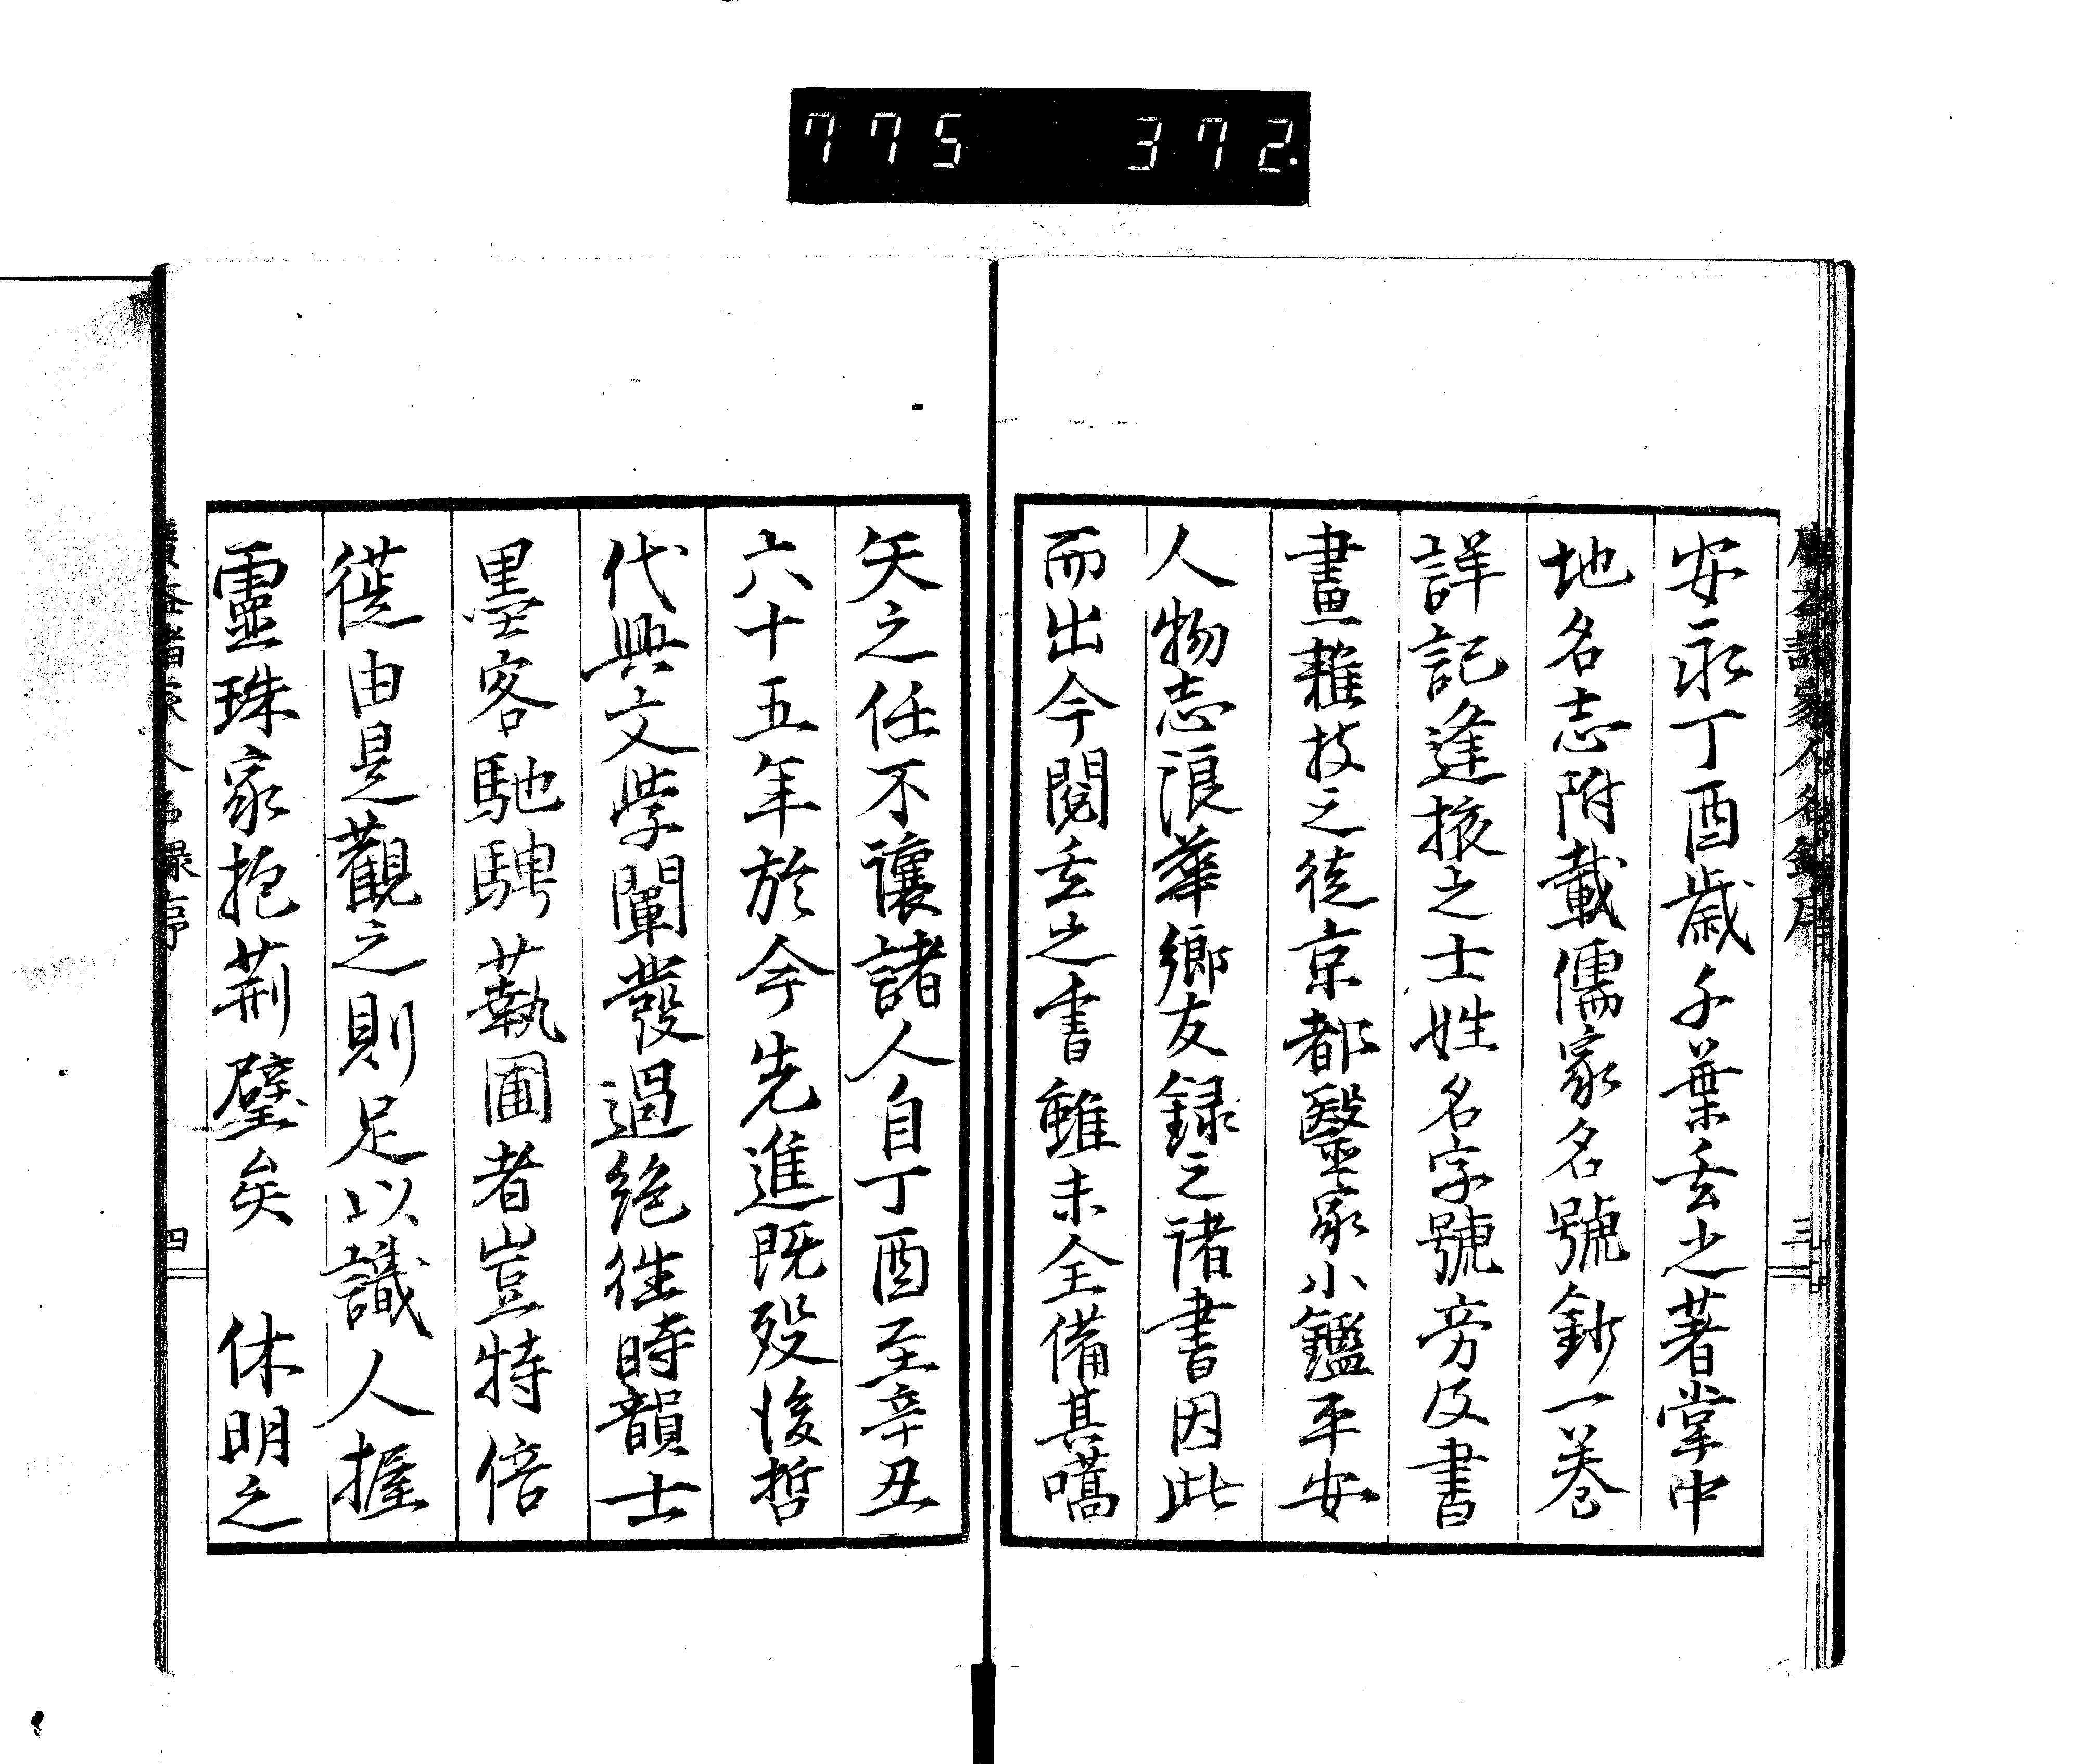 775 372
安永丁酉歳千葉玄之著掌中
地名志附載儒家名號鈔一卷
詳記逢掖之士姓名字號旁及書
畫雜技之徒京都醫家小鑑平安
人物志浪華鄉友録之諸書因此
而出今閱玄之書雖未全備其嚆
矢之任不讓諸人自丁酉至辛丑
六十五年於今先進既歿後哲
代興文學闡發過絶徃時韻士
墨客馳騁蓺圃者豈特倍
蓰由是觀之則足以識人握
靈珠家抱荊璧矣 休明之
四